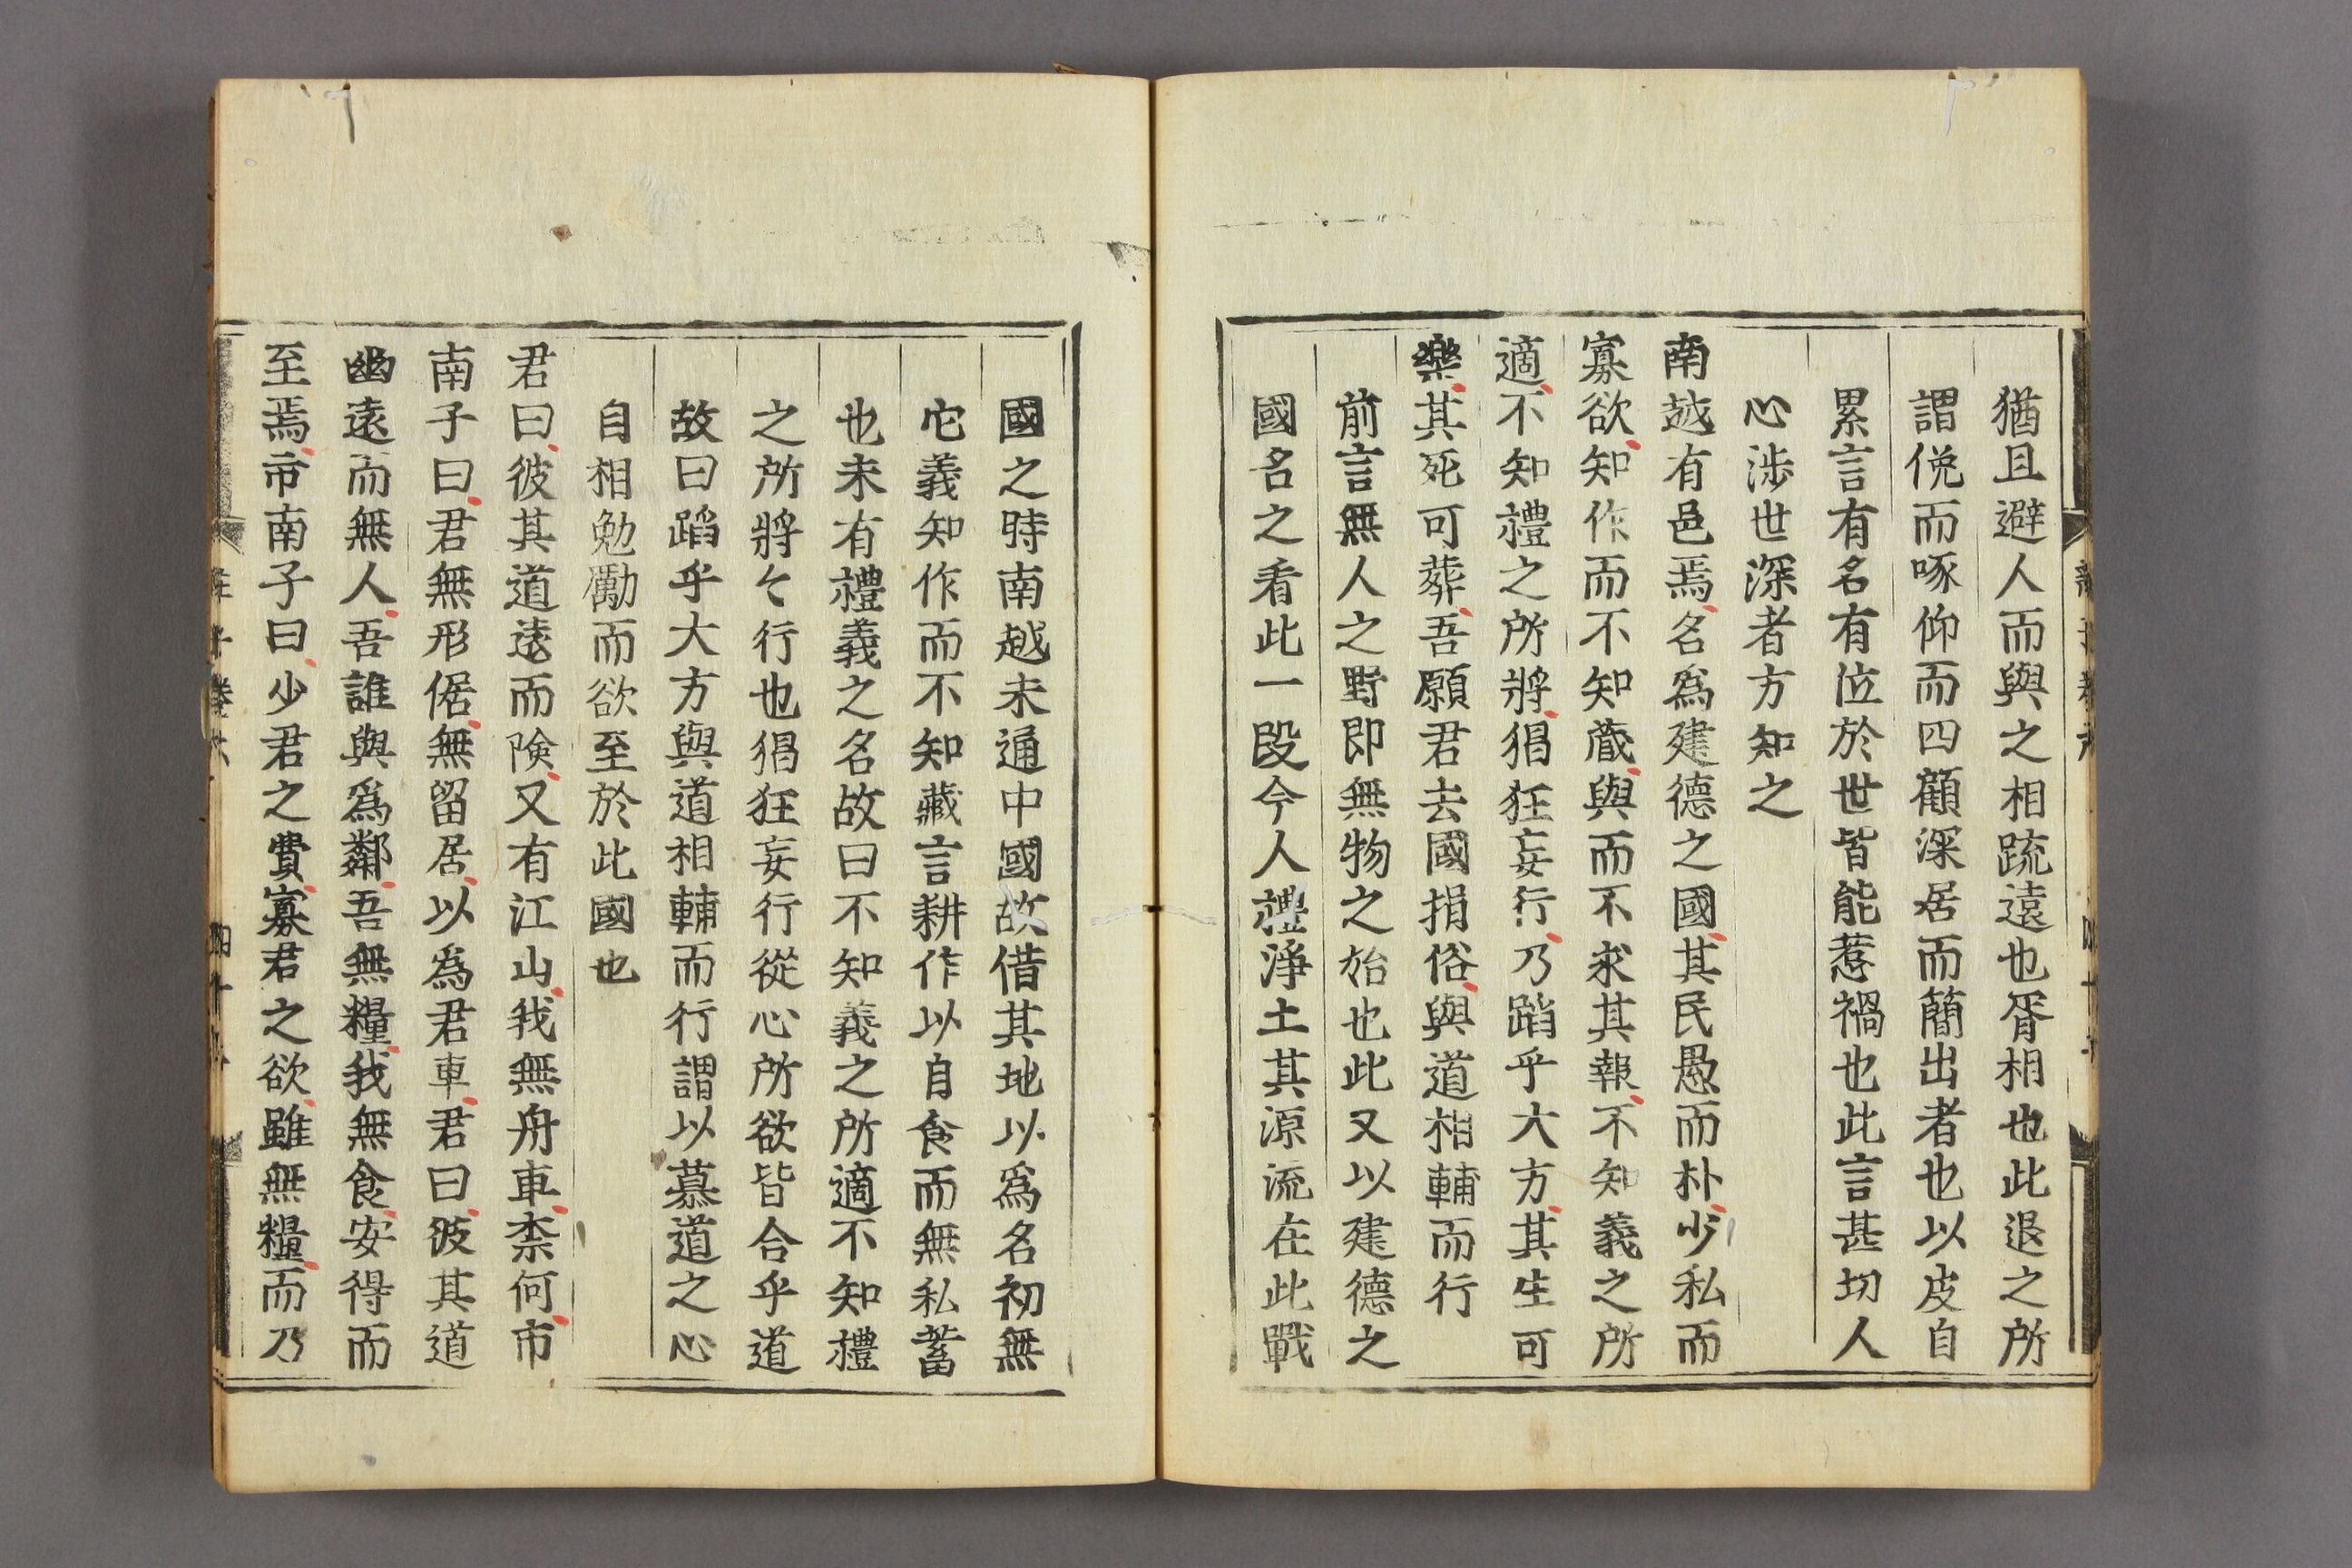 猶且避人而與之相疏遠也胥相也此退之所
謂俛而啄仰而四顧深居而簡出者也以皮自
累言有名有位於世皆能惹禍也此言甚切人
心涉世深者方知之
南越有邑焉名爲建德之國其民愚而朴少私而
寡欲知作而不知蔵與而不求其報不知義之所
適不知禮之所將猖狂妄行乃蹈乎大方其生可
樂其死可葬吾願君去國捐俗與道相輔而行
前言無人之野即無物之始也此又以建德之
國名之看此一段今人禮淨土其源流在此戰
國之時南越未通中國故借其地以爲名初無
它義知作而不知藏言耕作以自食而無私蓄
也未有禮義之名故曰不知義之所適不知禮
之所將々行也猖狂妄行從心所欲皆合乎道
故曰蹈乎大方與道相輔而行謂以慕道之心
自相勉勵而欲至於此國也
君曰彼其道遠而険又有江山我無舟車柰何市
南子曰君無形倨無留居以爲君車君曰彼其道
幽遠而無人吾誰與爲鄰吾無糧我無食安得而
至焉市南子曰少君之費寡君之欲雖無糧而乃